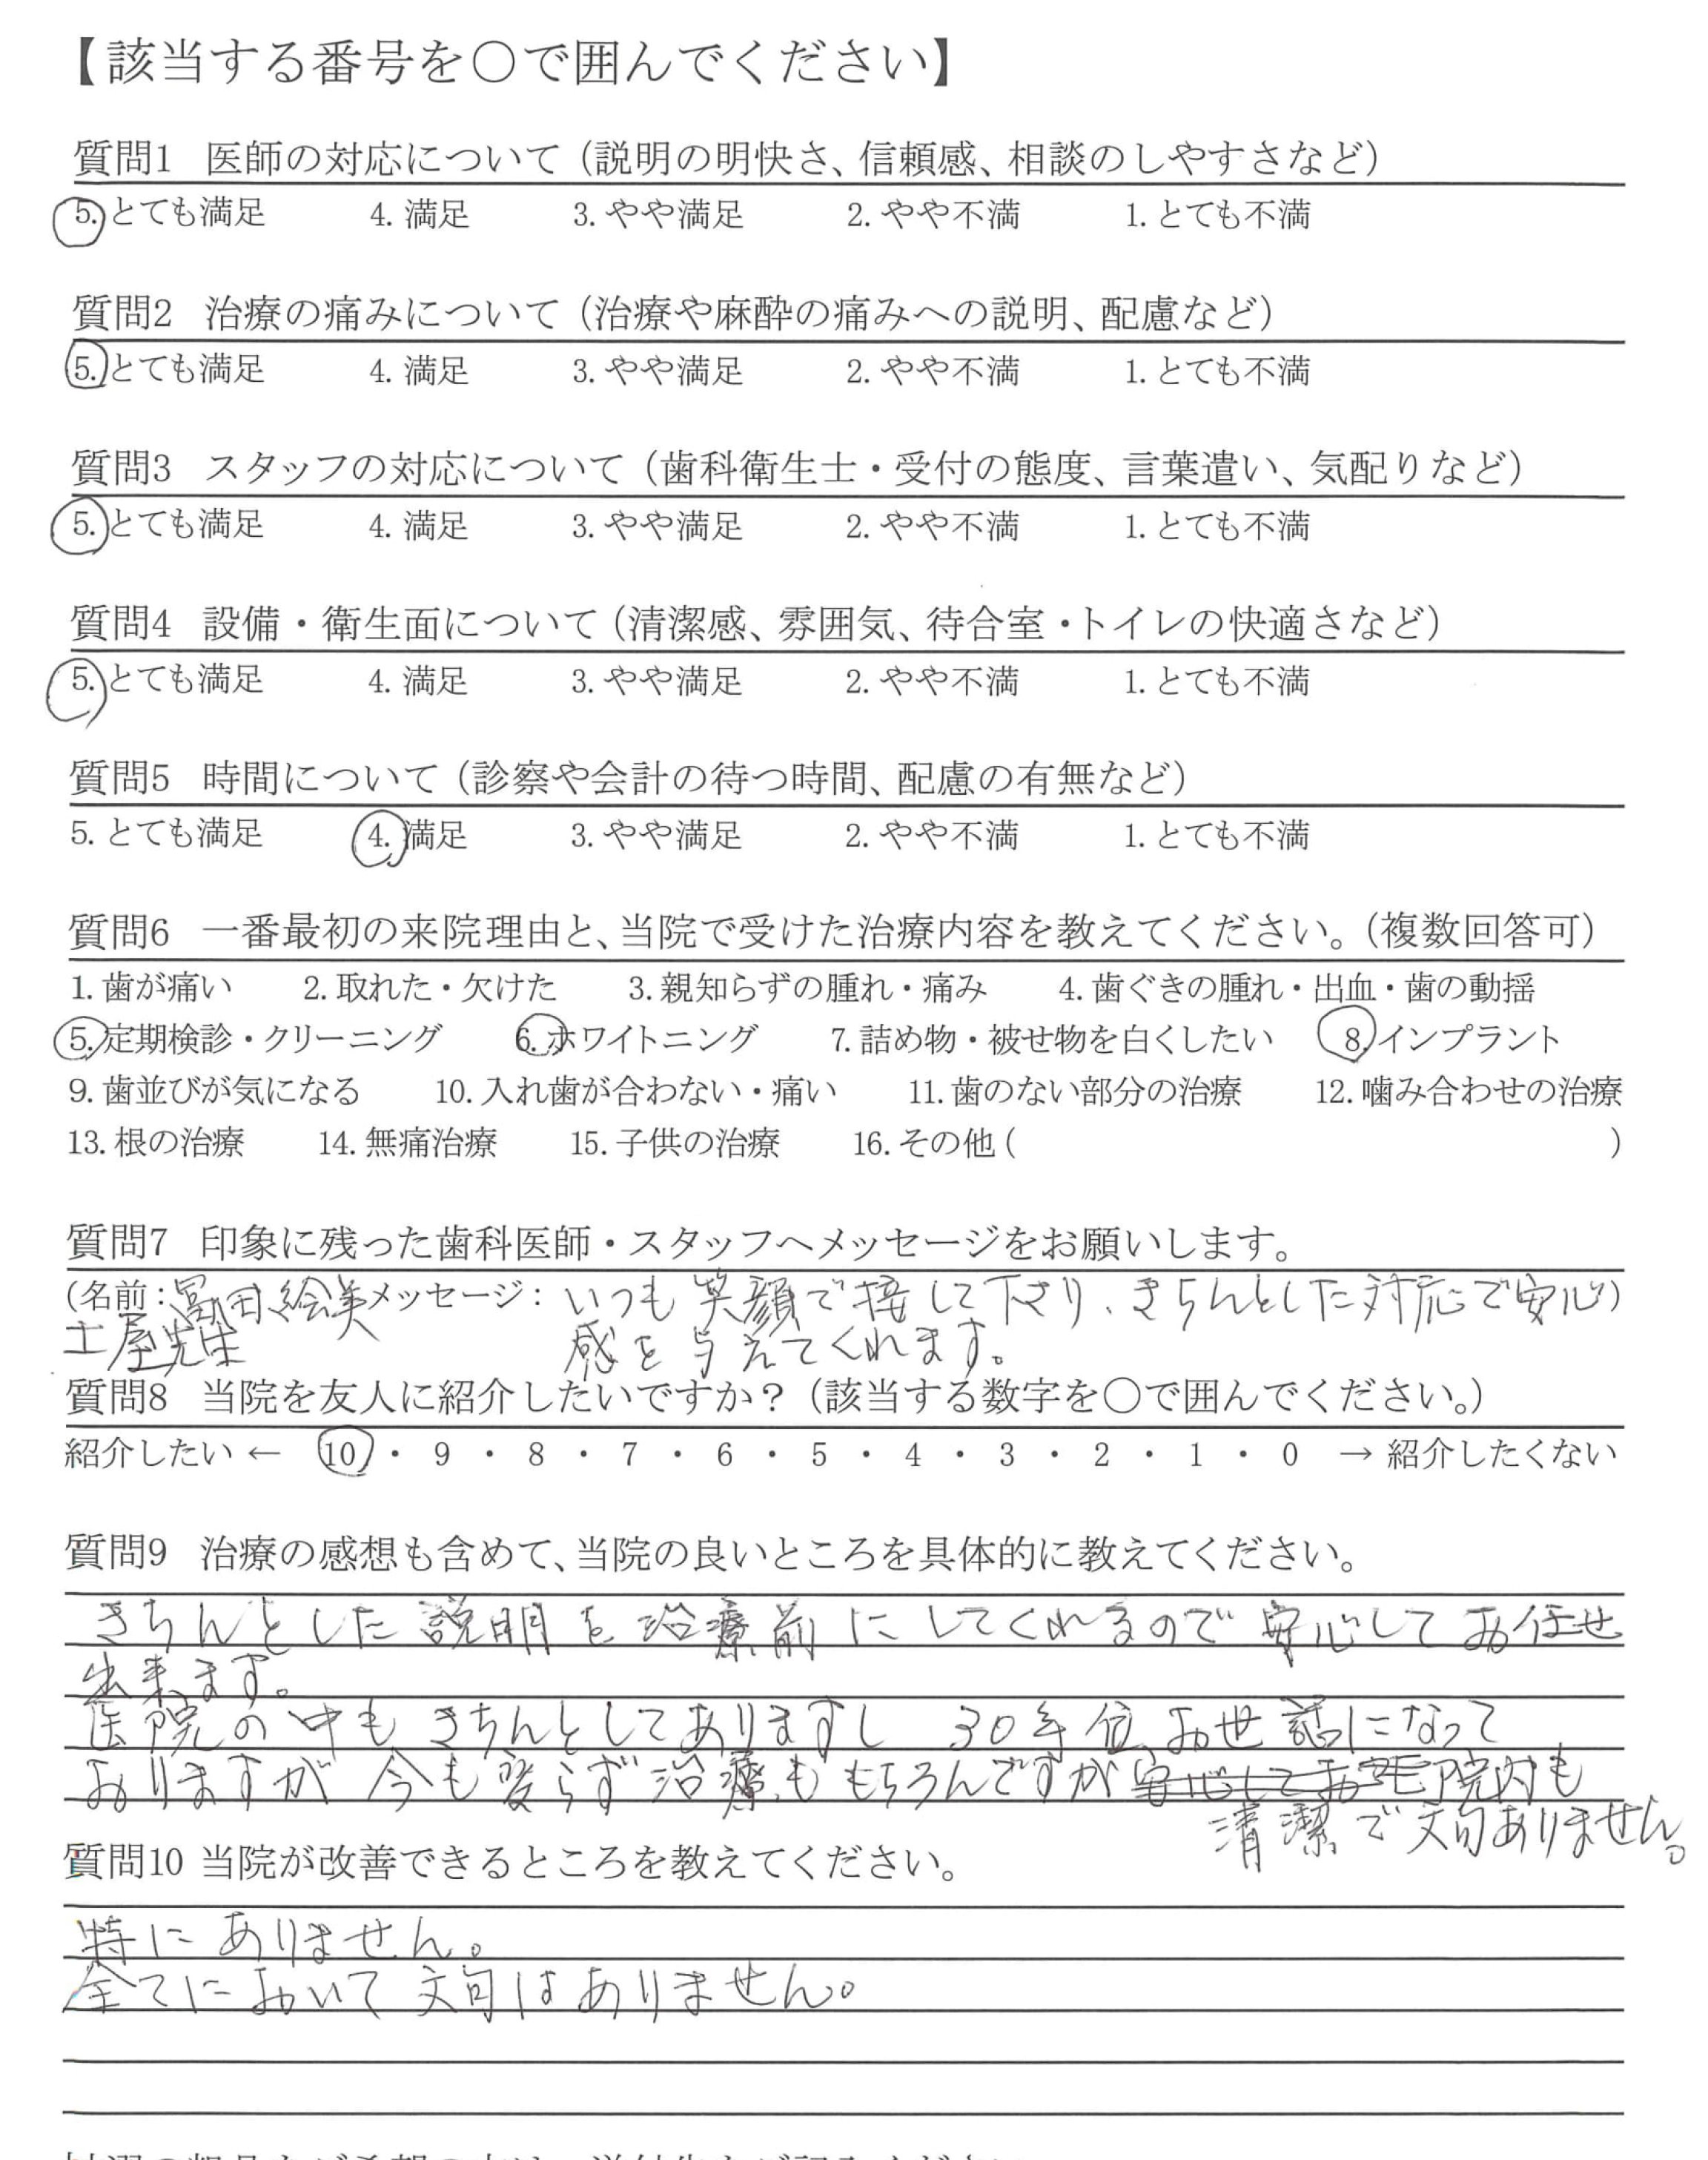 【該当する番号を○で囲んでください】
質問1 医師の対応について（説明の明快さ、信頼感、相談のしやすさなど）
5. とても満足 4. 満足 3. やや満足 2. やや不満 1. とても不満
質問2 治療の痛みについて（治療や麻酔の痛みへの説明、配慮など）
5. とても満足 4. 満足 3. やや満足 2. やや不満 1. とても不満
質問3 スタッフの対応について（歯科衛生士・受付の態度、言葉遣い、気配りなど）
5. とても満足 4. 満足 3. やや満足 2. やや不満 1. とても不満
質問4 設備・衛生面について（清潔感、雰囲気、待合室・トイレの快適さなど）
5. とても満足 4. 満足 3. やや満足 2. やや不満 1. とても不満
質問5 時間について（診察や会計の待つ時間、配慮の有無など）
5. とても満足 4. 満足 3. やや満足 2. やや不満 1. とても不満
質問6 一番最初の来院理由と、当院で受けた治療内容を教えてください。（複数回答可）
1. 歯が痛い 2. 取れた・欠けた 3. 親知らずの腫れ・痛み 4. 歯ぐきの腫れ・出血・歯の動揺
5. 定期検診・クリーニング 6. ホワイトニング 7. 詰め物・被せ物を白くしたい 8. インプラント
9. 歯並びが気になる 10. 入れ歯が合わない・痛い 11. 歯のない部分の治療 12. 噛み合わせの治療
13. 根の治療 14. 無痛治療 15. 子供の治療 16. その他（ ）
質問7 印象に残った歯科医師・スタッフへメッセージをお願いします。
（名前：冨田絵美 メッセージ：いつも笑顔で接して下さり、きちんとした対応で安心）
土屋先生 感を与えてくれます。
質問8 当院を友人に紹介したいですか？（該当する数字を○で囲んでください。）
紹介したい ← 10 ・ 9 ・ 8 ・ 7 ・ 6 ・ 5 ・ 4 ・ 3 ・ 2 ・ 1 ・ 0 → 紹介したくない
質問9 治療の感想も含めて、当院の良いところを具体的に教えてください。
きちんとした説明を治療前にしてくれるので安心してお任せ
出来ます。
医院の中もきちんとしてありますし 30年位お世話になって
おりますが今も変らず治療ももちろんですが安心してお院内も
清潔で文句ありません。
質問10 当院が改善できるところを教えてください。
特にありません。
全てにおいて文句はありません。